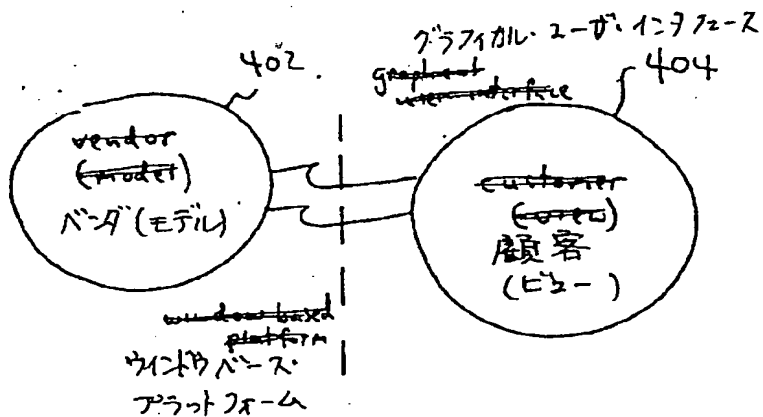 グラフィカル・ユーザ・インタフェース
402
graphical
user interface
404
vendor
(model)
ベンダ(モデル)
customer
(view)
顧客
(ビュー)
window based
platform
ウインドウベース・
プラットフォーム